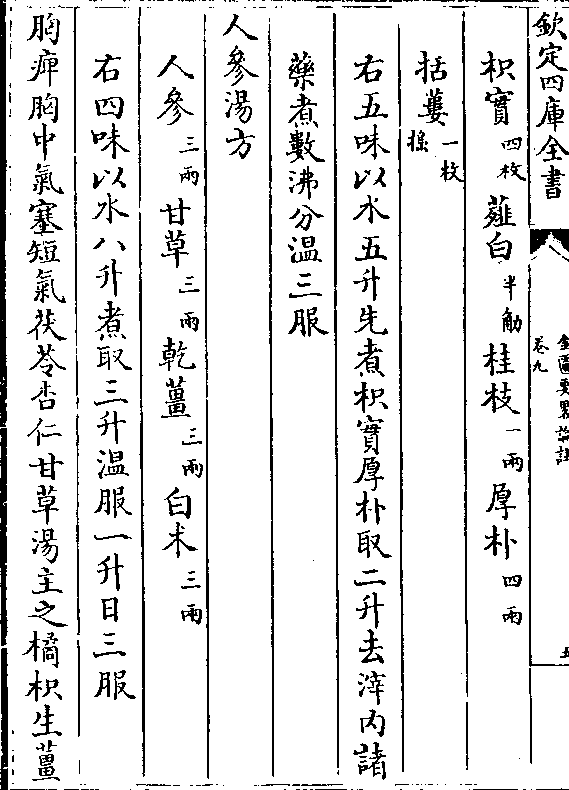 欽定四庫全書
金匱要略論註
卷九
五
枳實四枚 薤白半觔 桂枝一兩 厚朴四兩
括蔞一枚搗
右五味以水五升先煮枳實厚朴取二升去滓内諸
藥煮數沸分溫三服
人參湯方
人參三兩 甘草三兩 乾薑三兩 白朮三兩
右四味以水八升煮取三升溫服一升日三服
胸痺胸中氣塞短氣茯苓杏仁甘草湯主之橘枳生薑